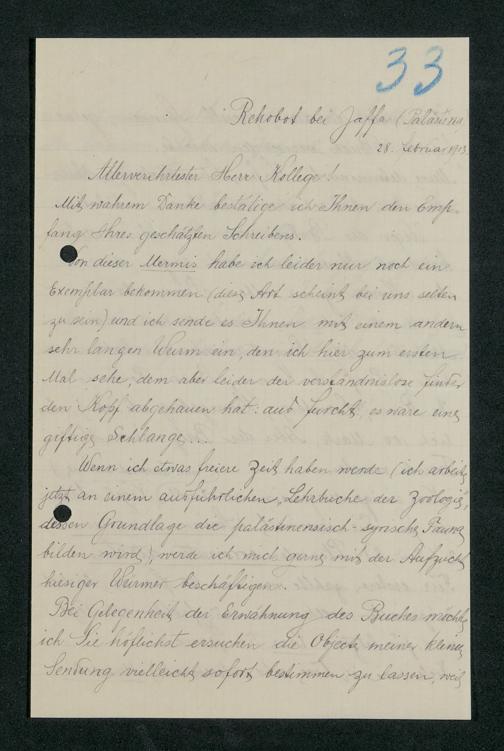 33
Rehobot bei Jaffa (Palästina
28. Februar 1913
Allerverehrtester Herr Kollege!
Mit wahrem Danke bestätige ich Ihnen den Emp-
fang Ihres geschätzten Schreibens.
Von dieser Mermis habe ich leider nur noch ein
Exemplar bekommen (diese Art scheint bei uns selten
zu sein) und ich sende es Ihnen mit einem andern
sehr langen Wurm ein, den ich hier zum ersten
Mal sehe, dem aber leider der verständnislose Finder
den Kopf abgehauen hat: aus Furcht, es wäre eine
giftige Schlange...
Wenn ich etwas freiere Zeit haben werde (ich arbeite
jetzt an einem ausführlichen „Lehrbuche der Zoologie",
dessen Grundlage die palästinensisch-syrische Fauna
bilden wird), werde ich mich gerne mit der Aufzucht
hiesiger Würmer beschäftigen.
Bei Gelegenheit der Erwähnung des Buches möchte
ich Sie höflichst ersuchen die Objecte meiner kleine
Sendung vielleicht sofort bestimmen zu lassen, weil